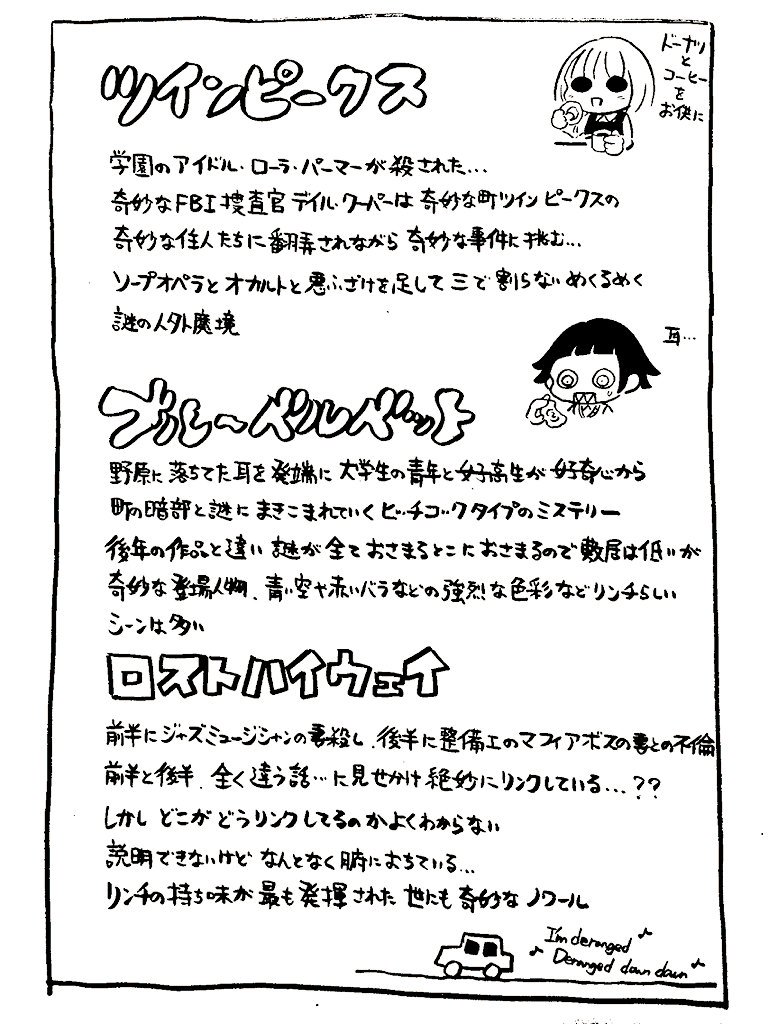 ツインピークス
ドーナツ
と
コーヒー
を
お供に
学園のアイドル・ローラ・パーマーが殺された…
奇妙なFBI捜査官デイル・クーパーは奇妙な町ツインピークスの
奇妙な住人たちに翻弄されながら奇妙な事件に挑む…
ソープオペラとオカルトと悪ふざけを足して三で割らないめくるめく
謎の人外魔境
耳…
ブルーベルベット
野原に落ちてた耳を発端に大学生の青年と女子高生が好奇心から
町の暗部と謎にまきこまれていくヒッチコックタイプのミステリー
後年の作品と違い謎が全ておさまるとこにおさまるので敷居は低いが
奇妙な登場人物、青い空や赤いバラなどの強烈な色彩などリンチらしい
シーンは多い
ロストハイウェイ
前半にジャズミュージシャンの妻殺し、後半に整備工のマフィアボスの妻との不倫
前半と後半、全く違う話…に見せかけ絶妙にリンクしている…??
しかしどこがどうリンクしてるのかよくわからない
説明できないけどなんとなく腑におちている…
リンチの持ち味が最も発揮された世にも奇妙なノワール
I'm deranged♪
♪Deranged down down♪